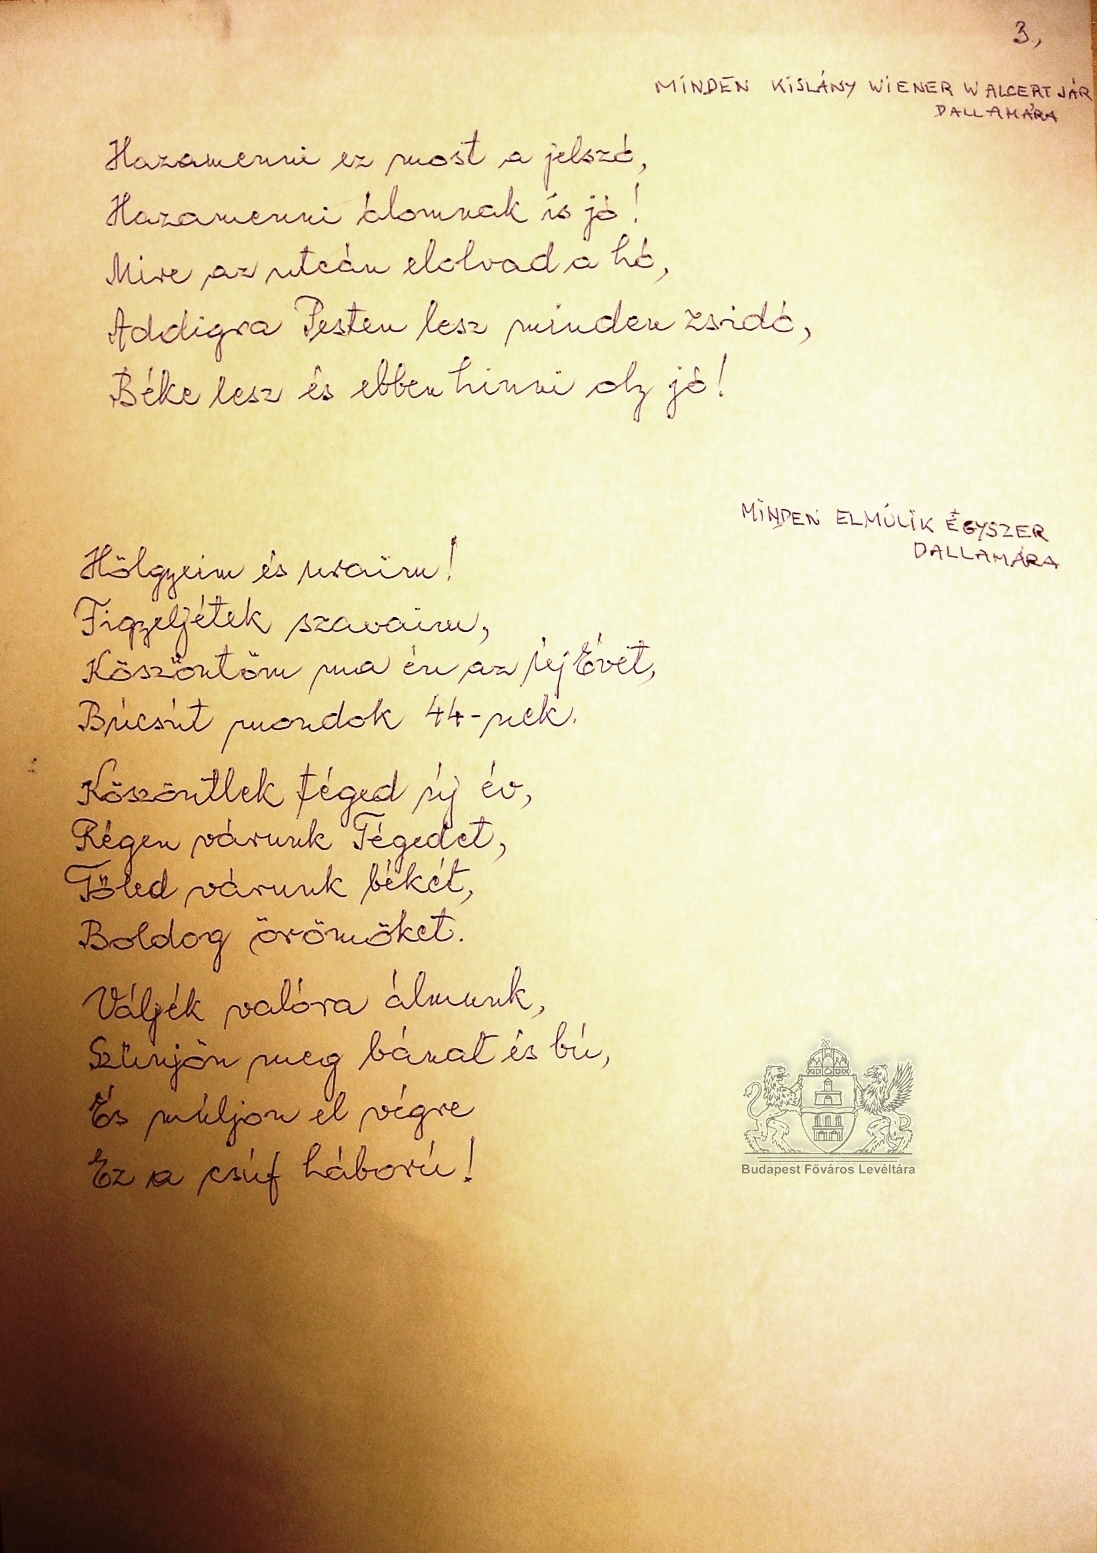 3,
MINDEN KISLÁNY WIENER WALCERT JÁR
DALLAMÁRA
Hazamenni ez most a jelszó,
Hazamenni álomnak is jó!
Mire az utcán elolvad a hó,
Addigra Pesten lesz minden zsidó,
Béke lesz és ebben hinni oly jó!
MINDEN ELMÚLIK EGYSZER
DALLAMÁRA
Hölgyeim és uraim!
Figyeljétek szavaim,
Köszöntöm ma én az új Évet,
Búcsút mondok 44-nek.
Köszöntlek téged új év,
Régen várunk Tégedet,
Tőled várunk békét,
Boldog örömöket.
Váljék valóra álmunk,
Szűnjön meg bánat és bú,
És múljon el végre
Ez a csúf háború!
Budapest Főváros Levéltára